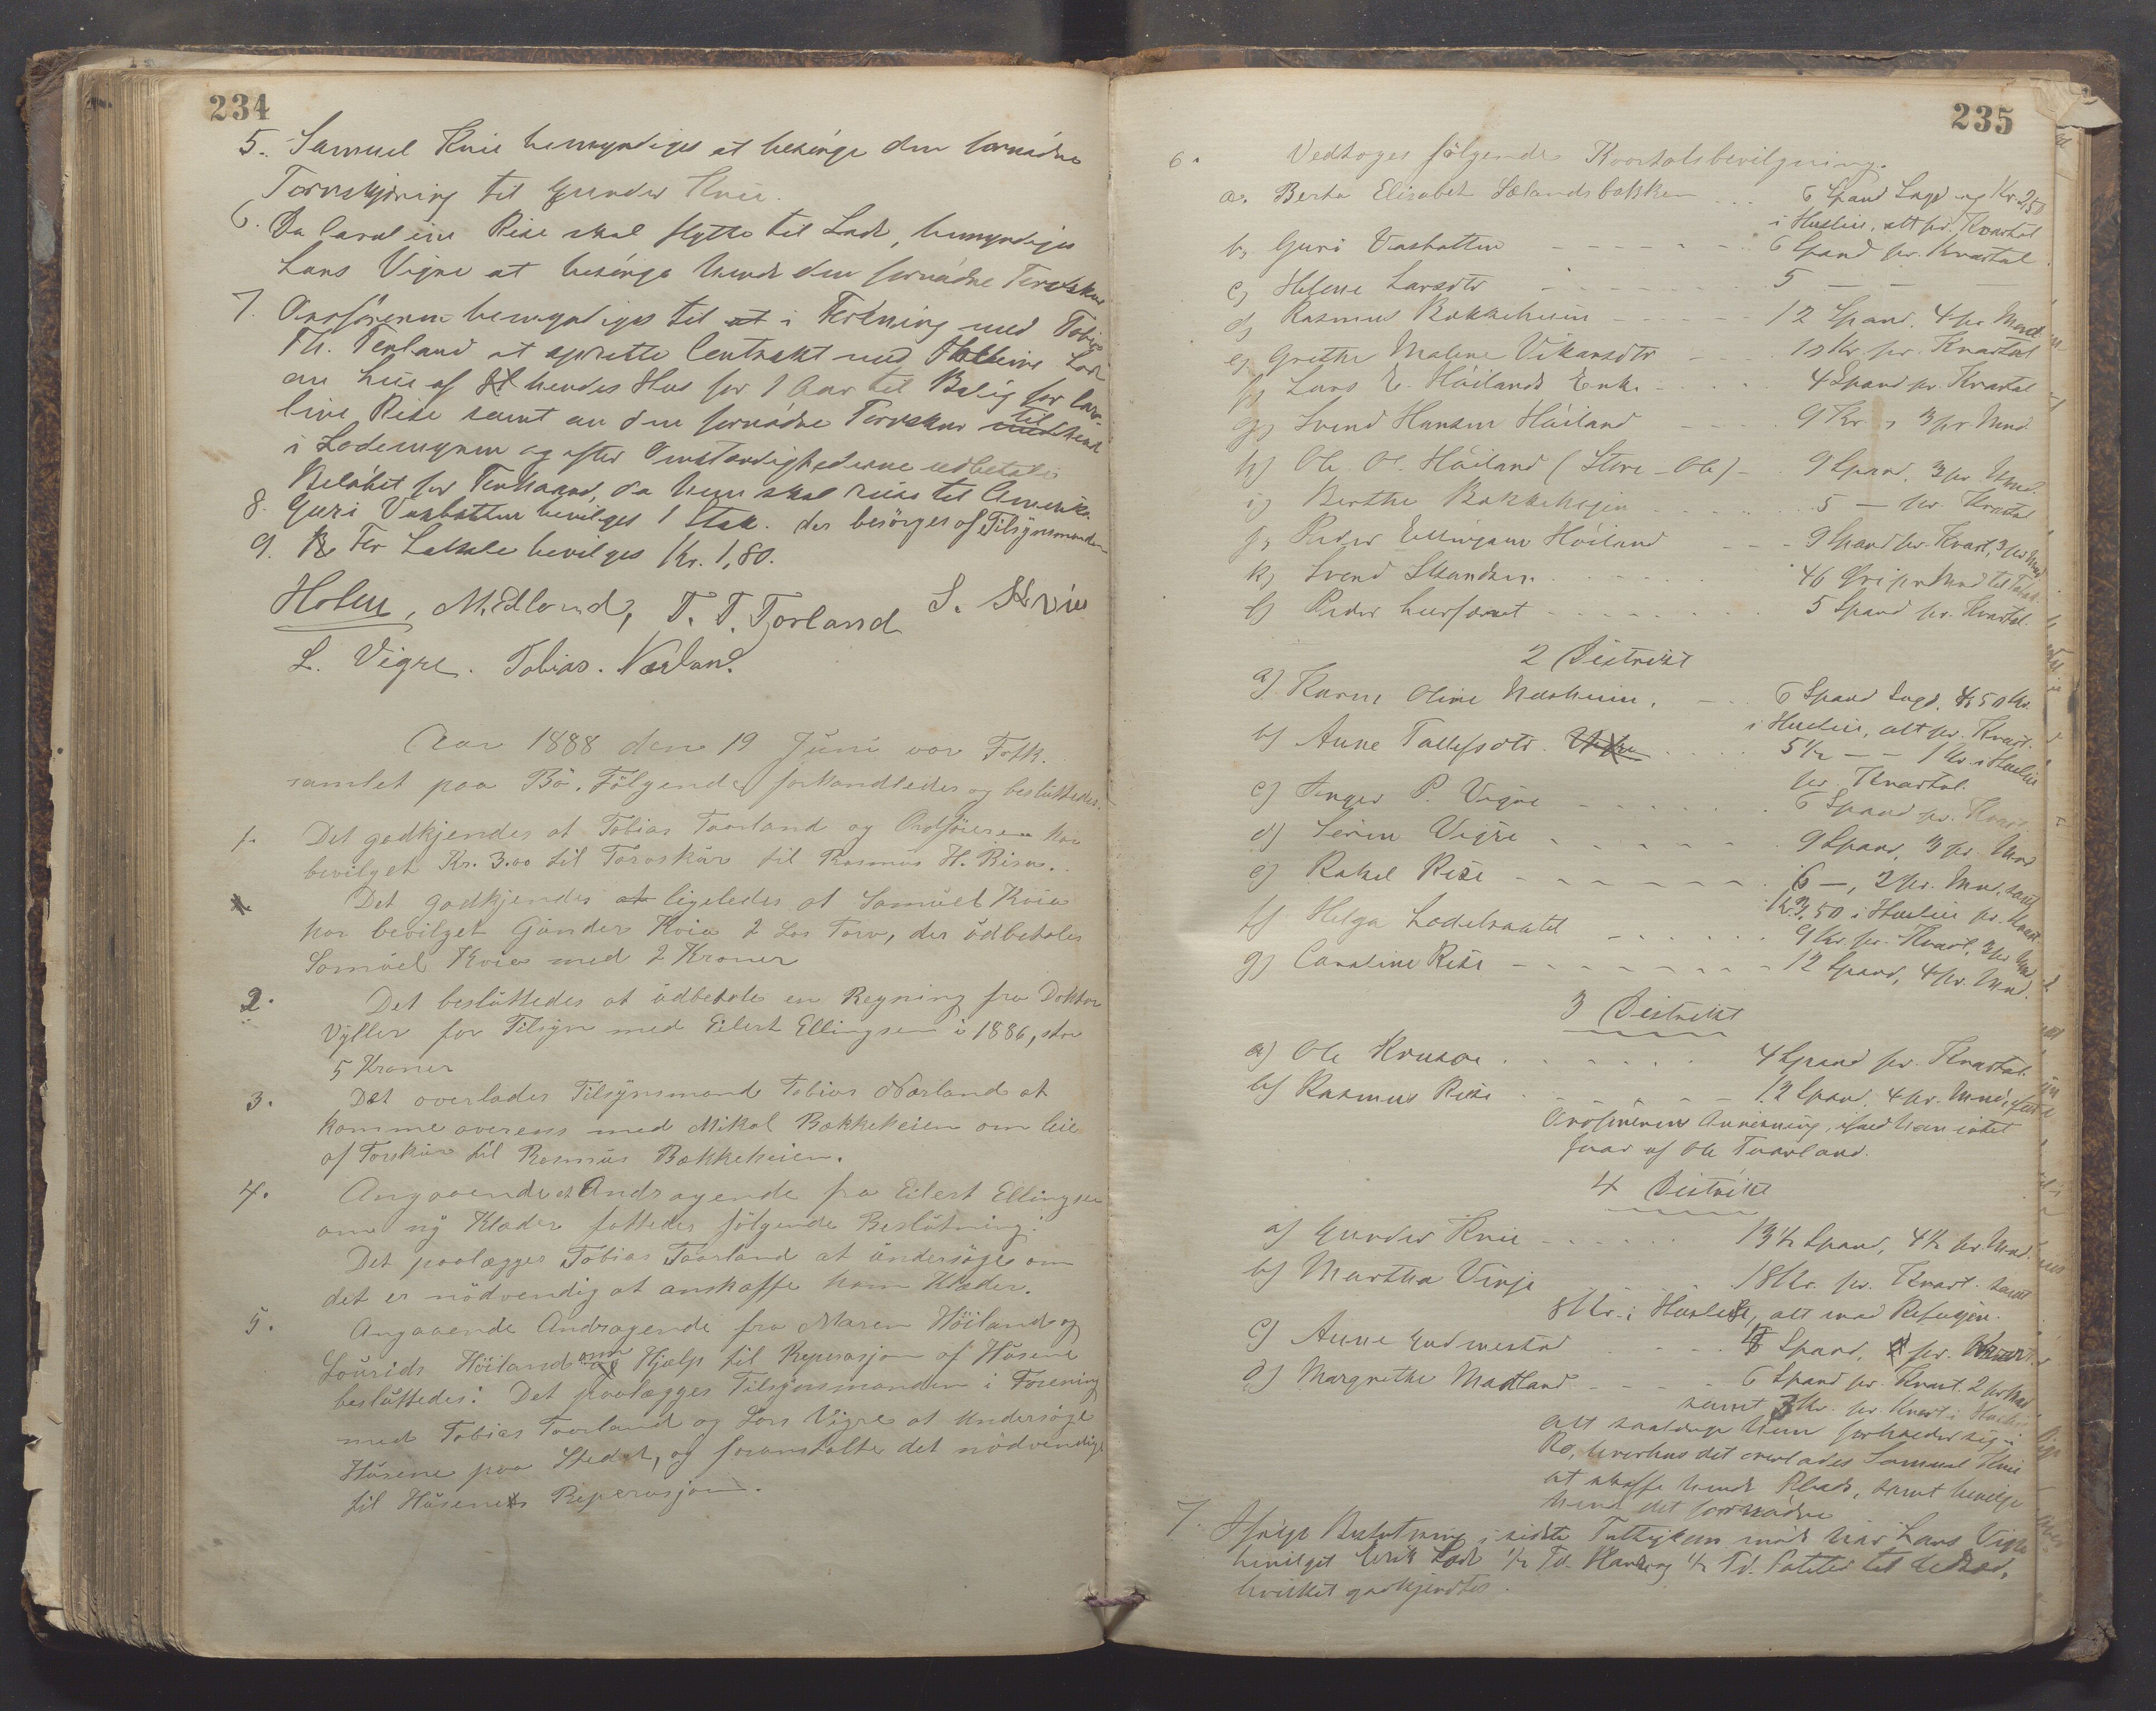 234
5. Samuel Kvie bemyndiges at besørge den fornødne
Torvskjøring til Gunder Kvie.
6. Da Caroline Rise skal flytte til Lode, bemyndiges
Lars Vigre at besørge hende den fornødne Torvskur
7. Ordføreren bemyndiges til at i Forening med Tobias
Th. Torland at oprette Contrakt med Lode
om Leie af hendes Hus for 1 Aar til Bolig for Caro-
line Rise samt om den fornødne Torvskur til hende
i Lodemyren og efter Omstændighederne udbetale
Beløbet for Torhaand, da hun skal reise til Amerika.
8. Guri Vasbotten bevilges 1 Stak. der besørges af Tilsynsmanden
9. For Lokale bevilges Kr. 1,80.
Holm, M. Edland, T. T. Torland S. Kvie
L. Vigre. Tobias. Nærland.
Aar 1888 den 19 Juni var Fatk.
samlet paa Bø. Følgende forhandledes og besluttedes.
1. Det godkjendes at Tobias Taarland og Ordføreren har
bevilget Kr. 3.00 til Torvskur til Rasmus H. Rise.
Det godkjendes at ligeledes at Samuel Kvie
har bevilget Gunder Kvie 2 Los Torv, der udbetales
Samuel Kvie med 2 Kroner
2. Det besluttedes at udbetale en Regning fra Doktor
Vyller for Tilsyn med Eilert Ellingsen i 1886, stor
5 Kroner
3. Det overlades Tilsynsmand Tobias Nærland at
komme overens med Mikal Bakkeheien om leie
af Torvskur til Rasmus Bakkeheien.
4. Angaaende et Andragende fra Eilert Ellingsen
om ny Klæder fattedes følgende Beslutning:
Det paalægges Tobias Taarland at undersøge om
det er nødvendig at anskaffe ham Klæder.
5. Angaaende Andragende fra Maren Høiland og
Lourids Høiland om Hjælp til Reperasjon af Husene
besluttedes: Det paalægges Tilsynsmanden i Forening
med Tobias Taarland og Lars Vigre at undersøge
Husene paa Stedet, og foranstalte det nødvendige
til Husenes Reperasjon.
235
6. Vedtoges følgende Kvartalsbevilgning.
a. Berta Elisabet Sælandsbakken ... 6 Spand Lagd og Kr. 2,50
i Husleie, alt pr. Kvartal
b, Guri Vasbotten - - - - - 6 Spand pr. Kvartal
c, Helene Larsdtr - - - - - 5 — —
d, Rasmus Bakkeheien - - - - - 12 Spand, 4 pr. Mnd.
e, Grethe Malene Vikarsdtr - - - 18 Kr. pr. Kvartal
f, Lars E. Høilands Enke - - - 4 Spand pr. Kvartal
g, Svend Hansen Høiland - - 9 Kr. , 3 pr. Mnd.
h) Ole Ol. Høiland (Store-Ole) - 9 Spand, 3 pr. Mnd.
i, Berthe Bakkeheien - - - - 5 — pr. Kvartal
j, Peder Ellingsen Høiland - - - 9 Spand pr. Kvart, 3 pr Mnd
k, Svend Skandsen - - - - - 46 Øre pr Mnd til Tobak.
l) Peder - - - - - 5 Spand pr. Kvartal.
2 Distrikt
a) Karen Oline Nesheim. - - 6 Spand Lagd, 4,50 Kr.
i Husleie, alt pr. Kvart.
b) Anne Tallefsdtr. - - 5 ½ — — 1 Kr. i Husleie
pr. Kvartal.
c) Inger P. Vigre - - - - - 6 Spand pr. Kvart
d) Søren Vigre - - - - - 9 Spand, 3 pr. Mnd
e) Rakel Rise - - - - - 6 —, 2 pr. Mnd. samt
Kr 3,50 i Husleie pr. Kvart.
f) Helga - - - - - 9 Kr. pr. Kvart, 3 pr Mnd.
g) Caroline Rise - - - - - 12 Spand, 4 pr. Mnd.
3 Distrikt
a) Ole Krusoe - - - - - 4 Spand pr. Kvartal.
b) Rasmus Rise - - - - - 12 Spand, 4 pr. Mnd, efter
Ordførerens Anvisning, ifald han intet
faar af Ole Tuarland.
4 Distrikt
a) Gunder Kvie - - - - - 13 ½ Spand, 4 ½ pr. Mnd.
b) Martha Virje - - - 18 Kr. pr. Kvart. samt
8 Kr. i Husleie, alt mod Refusjon.
c) Anne Gudmestad - - - - Spand, pr. Kvart.
d) Margrethe Madland - - - - 6 Spand pr. Kvart. 2 pr Mnd
samt 3 Kr. pr. Kvart i Husleie
alt saalænge hun forholder sig i
Ro, hverhos det overlades Samuel Kvie
at skaffe hende Plads, samt bevilge
hende det fornødne
7. Ifølge Beslutning i sidste Fattigkommmøde har Lars Vigre
bevilget Erik Lode ½ Td. Havre og ½ Td. Poteter til Udsæd,
hvilket godkjendtes.